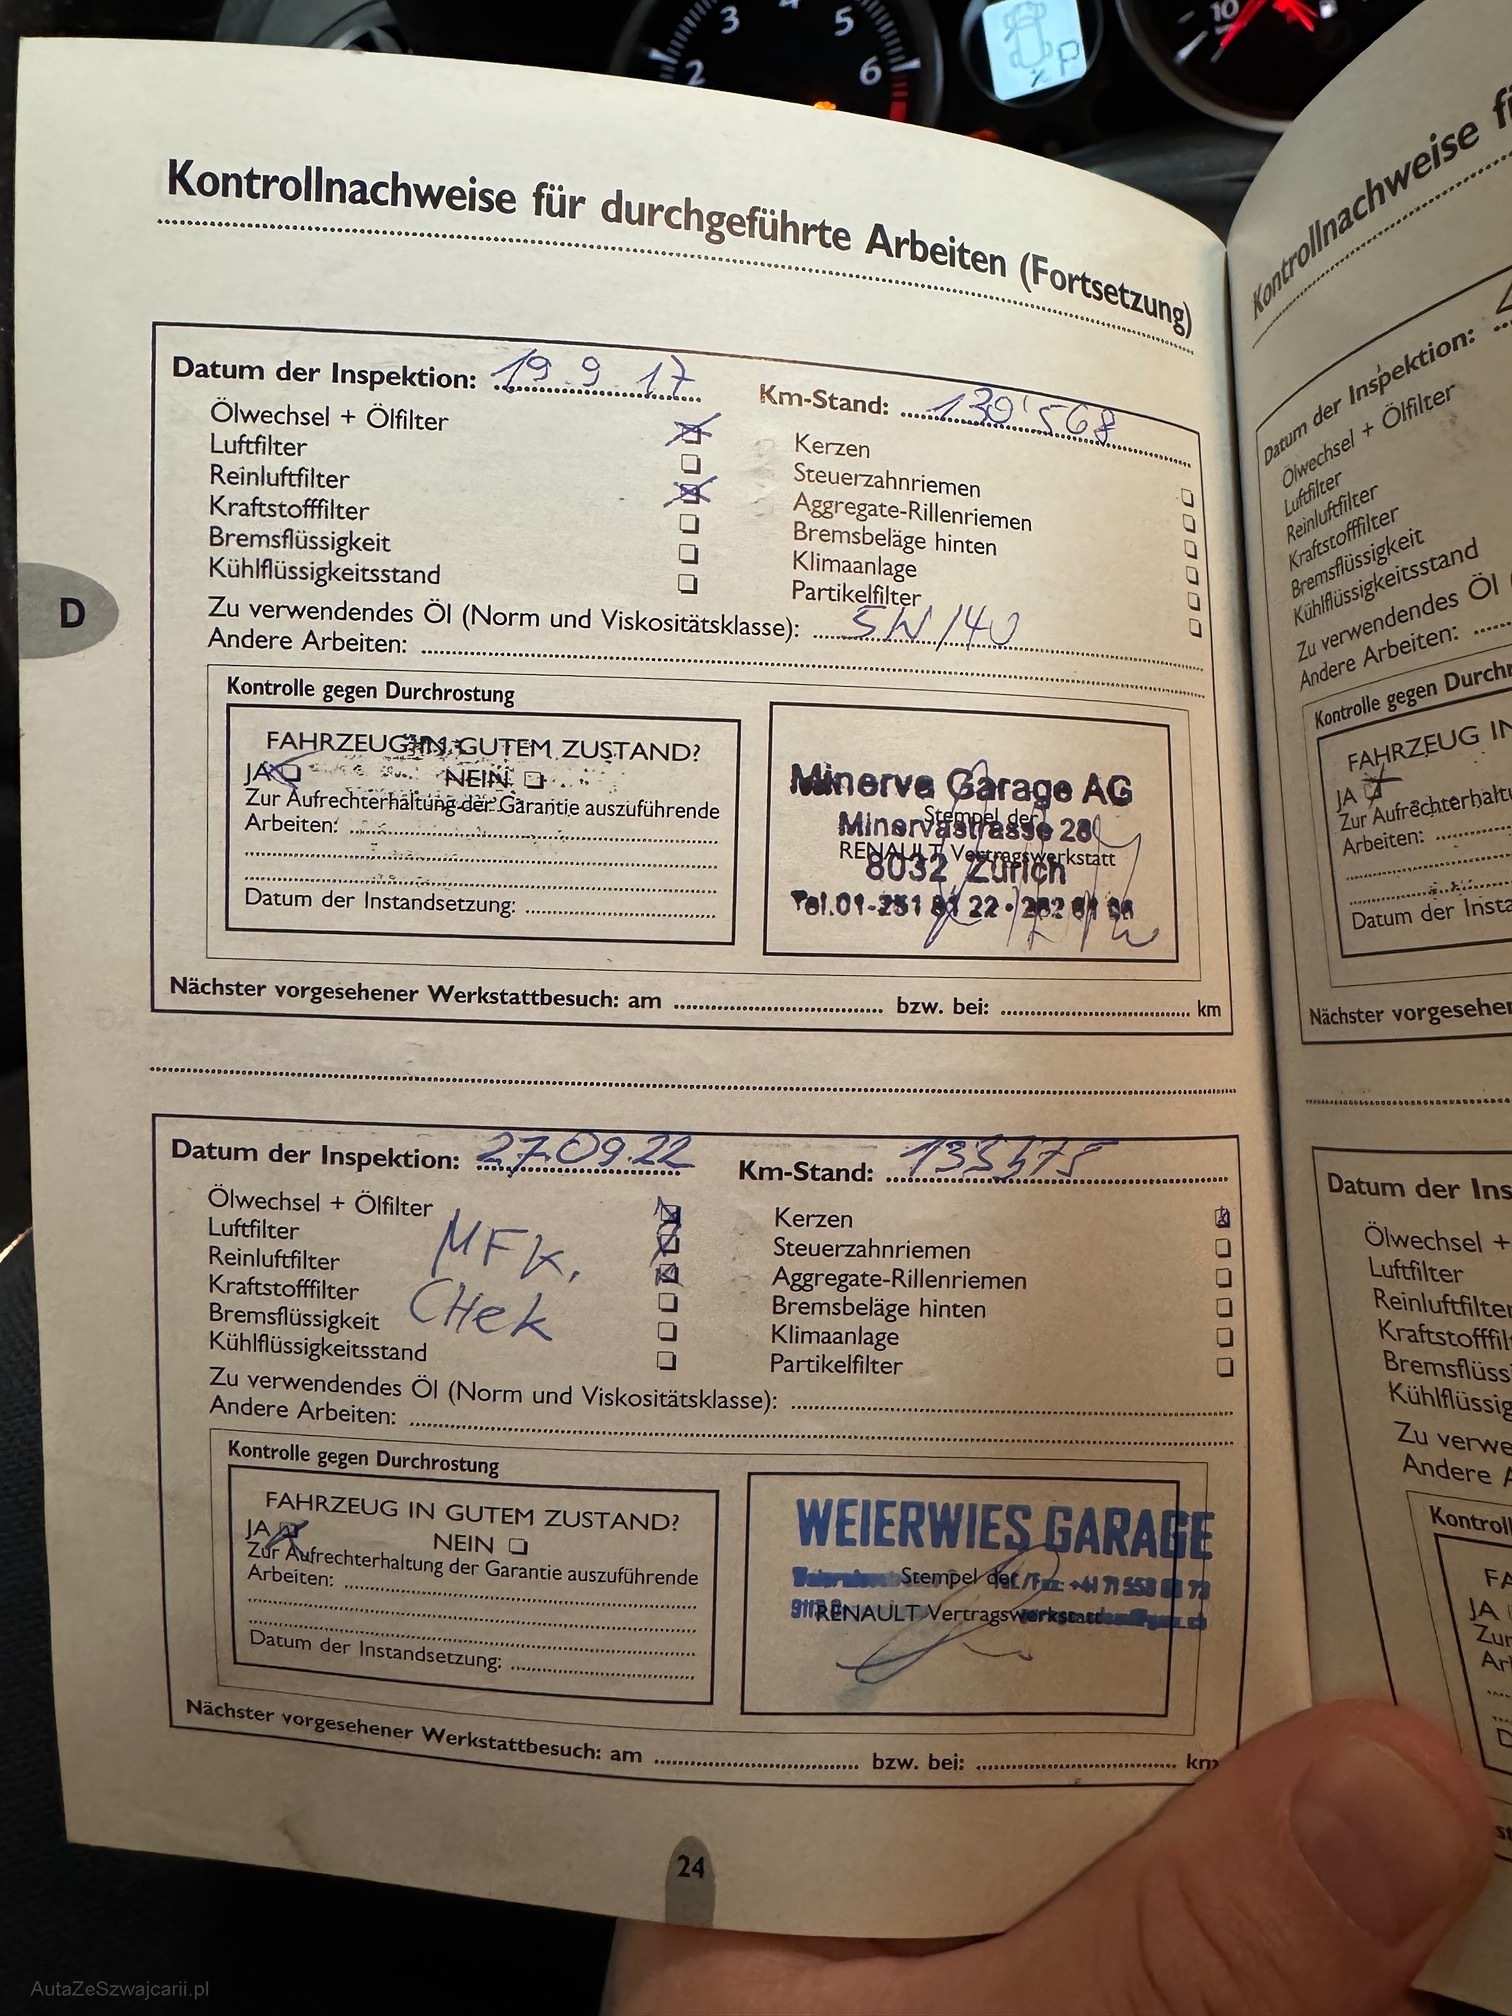 3 4 5
2 6
P
10
Kontrollnachweise für durchgeführte Arbeiten (Fortsetzung)
Datum der Inspektion: 19.9.17 Km-Stand: 130'568
Ölwechsel + Ölfilter Kerzen
Luftfilter Steuerzahnriemen
Reinluftfilter Aggregate-Rillenriemen
Kraftstofffilter Bremsbeläge hinten
Bremsflüssigkeit Klimaanlage
Kühlflüssigkeitsstand Partikelfilter
Zu verwendendes Öl (Norm und Viskositätsklasse): 5W/40
Andere Arbeiten:
D
Kontrolle gegen Durchrostung
FAHRZEUG IN GUTEM ZUSTAND?
JA NEIN
Zur Aufrechterhaltung der Garantie auszuführende
Arbeiten:
Datum der Instandsetzung:
Minerva Garage AG
Stempel der
Minervastrasse 28
RENAULT Vertragswerkstatt
8032 Zürich
Tel.01-251
Nächster vorgesehener Werkstattbesuch: am bzw. bei: km
Datum der Inspektion: 27.09.22 Km-Stand:
Ölwechsel + Ölfilter Kerzen
Luftfilter Steuerzahnriemen
Reinluftfilter Aggregate-Rillenriemen
Kraftstofffilter Bremsbeläge hinten
Bremsflüssigkeit Klimaanlage
Kühlflüssigkeitsstand Partikelfilter
MFK,
CHek
Zu verwendendes Öl (Norm und Viskositätsklasse):
Andere Arbeiten:
Kontrolle gegen Durchrostung
FAHRZEUG IN GUTEM ZUSTAND?
JA NEIN
Zur Aufrechterhaltung der Garantie auszuführende
Arbeiten:
Datum der Instandsetzung:
WEIERWIES GARAGE
Stempel der
RENAULT Vertragswerkstatt
Nächster vorgesehener Werkstattbesuch: am bzw. bei: km
24
Kontrollnachweise
Datum der Inspektion:
Ölwechsel + Ölfilter
Luftfilter
Reinluftfilter
Kraftstofffilter
Bremsflüssigkeit
Kühlflüssigkeitsstand
Zu verwendendes Öl
Andere Arbeiten:
Kontrolle gegen Durchr
FAHRZEUG IN
JA
Zur Aufrechterhaltu
Arbeiten:
Datum der Insta
Nächster vorgesehener
Datum der Ins
Ölwechsel +
Luftfilter
Reinluftfilter
Kraftstofffil
Bremsflüss
Kühlflüssig
Zu verwe
Andere A
Kontroll
FA
JA
Zur
Ar
D
AutaZeSzwajcarii.pl